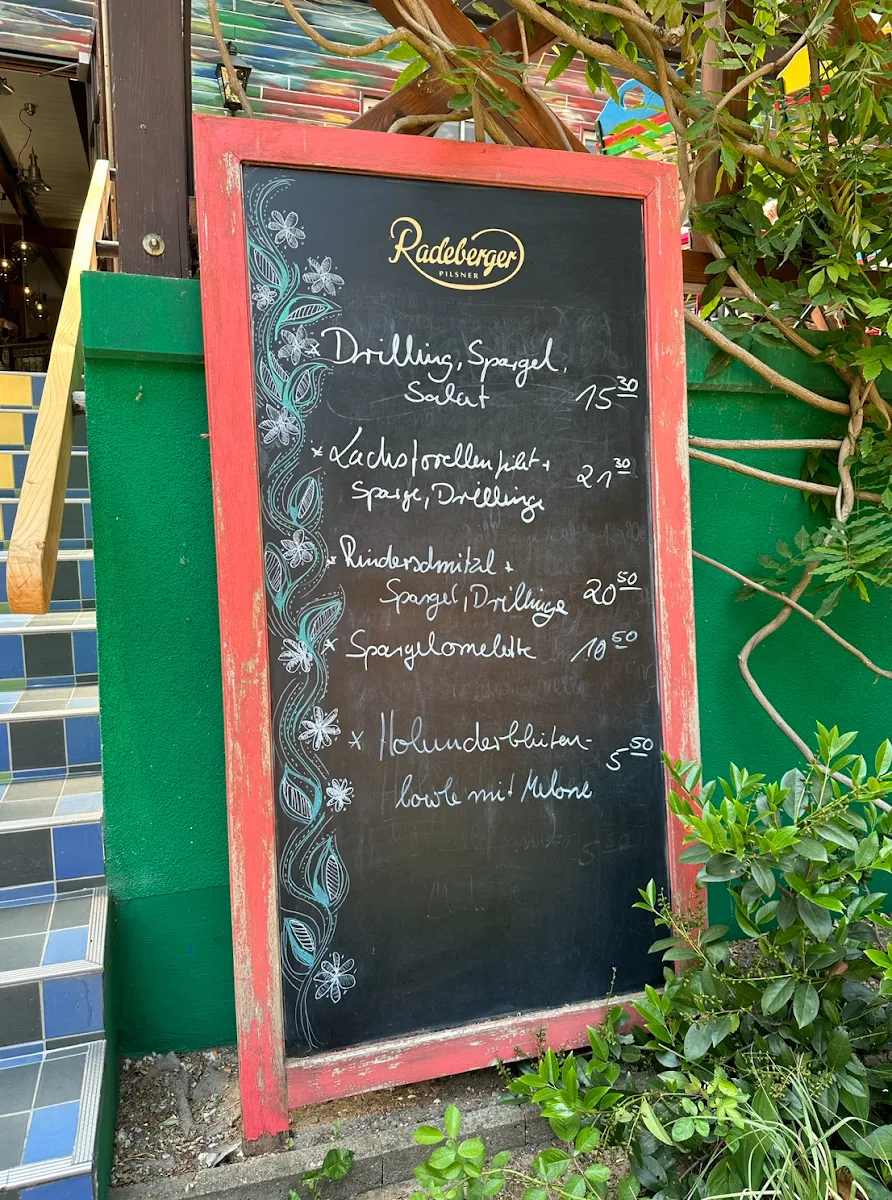 Radeberger
PILSNER
Drilling, Spargel,
Salat 15 30
* Lachsforellenfilet +
Sparge, Drillinge 21 30
* Rinderschnitzel +
Spargel, Drillinge 20 50
* Spargelomelette 10 50
* Holunderblüten-
bowle mit Melone 5 50